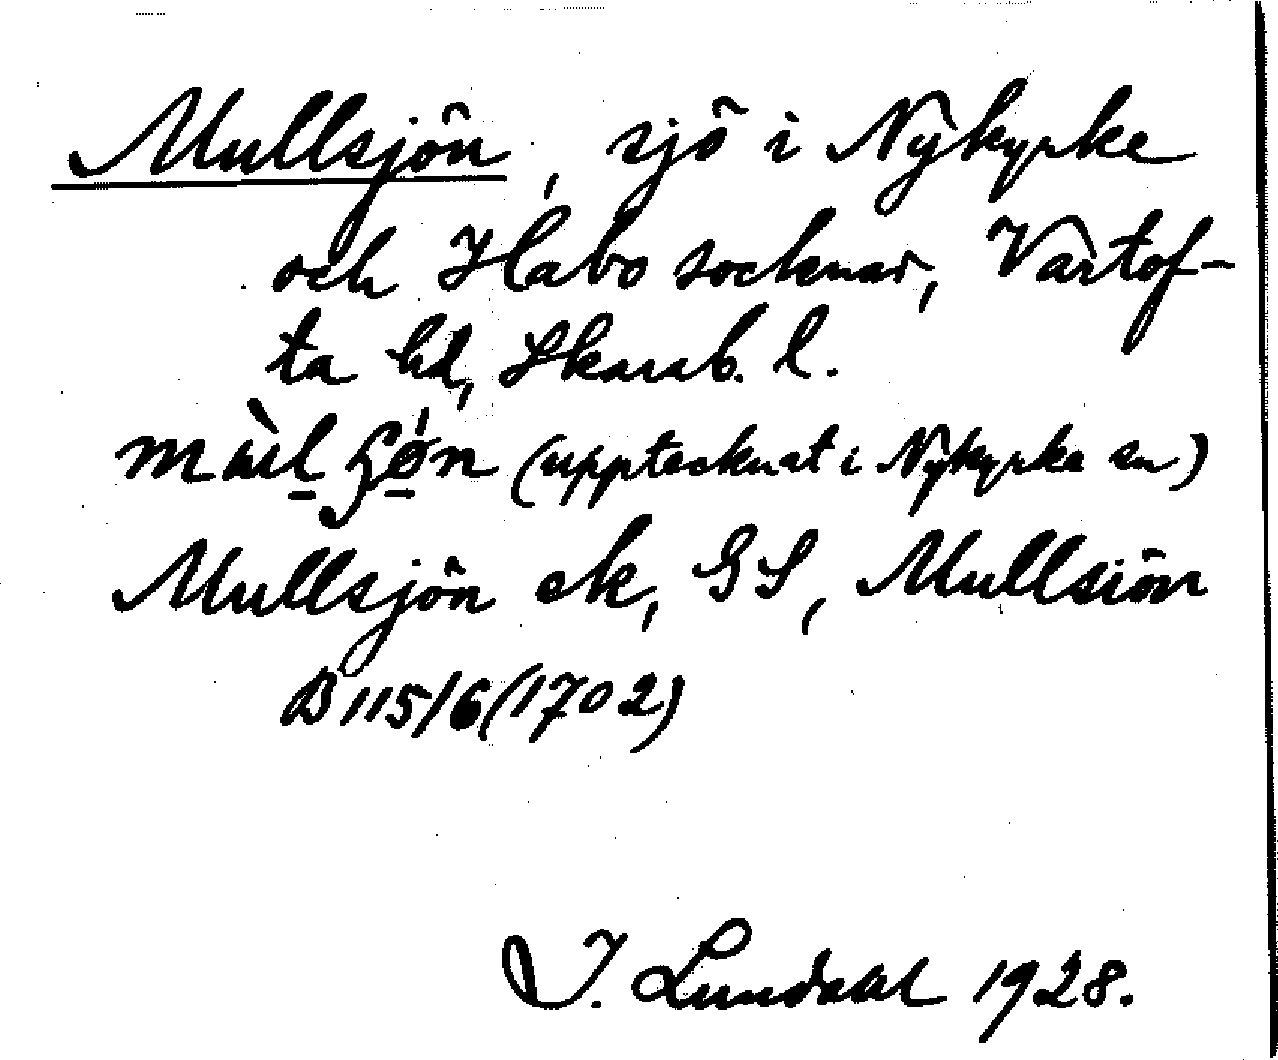 Mullsjön, sjö i Nykyrke
och Habo socknar, Vartof-
ta hd, Skarab. l.
(upptecknat i Nykyrke sn)
Mullsjön ek, GS, Mullsiön
B 115/6 (1702)
I. Lundahl 1928.